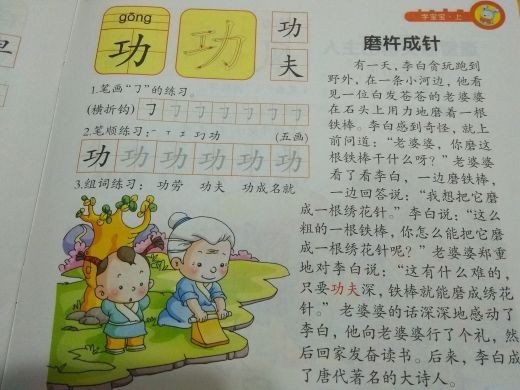 gōng
功
功
功
夫
1.笔画“㇆”的练习。
(横折钩) ㇆
2.笔顺练习: 功 (五画)
功 功 功 功 功 功
3.组词练习: 功劳 功夫 功成名就
学宝宝·上
磨杵成针
有一天，李白贪玩跑到
野外，在一条小河边，他看
见一位白发苍苍的老婆婆
在石头上用力地磨着一根
铁棒。李白感到奇怪，就上
前问道：“老婆婆，你磨这
根铁棒干什么呀？”老婆婆
看了看李白，一边磨铁棒，
一边回答说：“我想把它磨
成一根绣花针。”李白说：“这么
粗的一根铁棒，你怎么能把它磨
成一根绣花针呢？”老婆婆郑重
地对李白说：“这有什么难的，
只要功夫深，铁棒就能磨成绣花
针。”老婆婆的话深深地感动了
李白，他向老婆婆行了个礼，然
后回家发奋读书。后来，李白成
了唐代著名的大诗人。